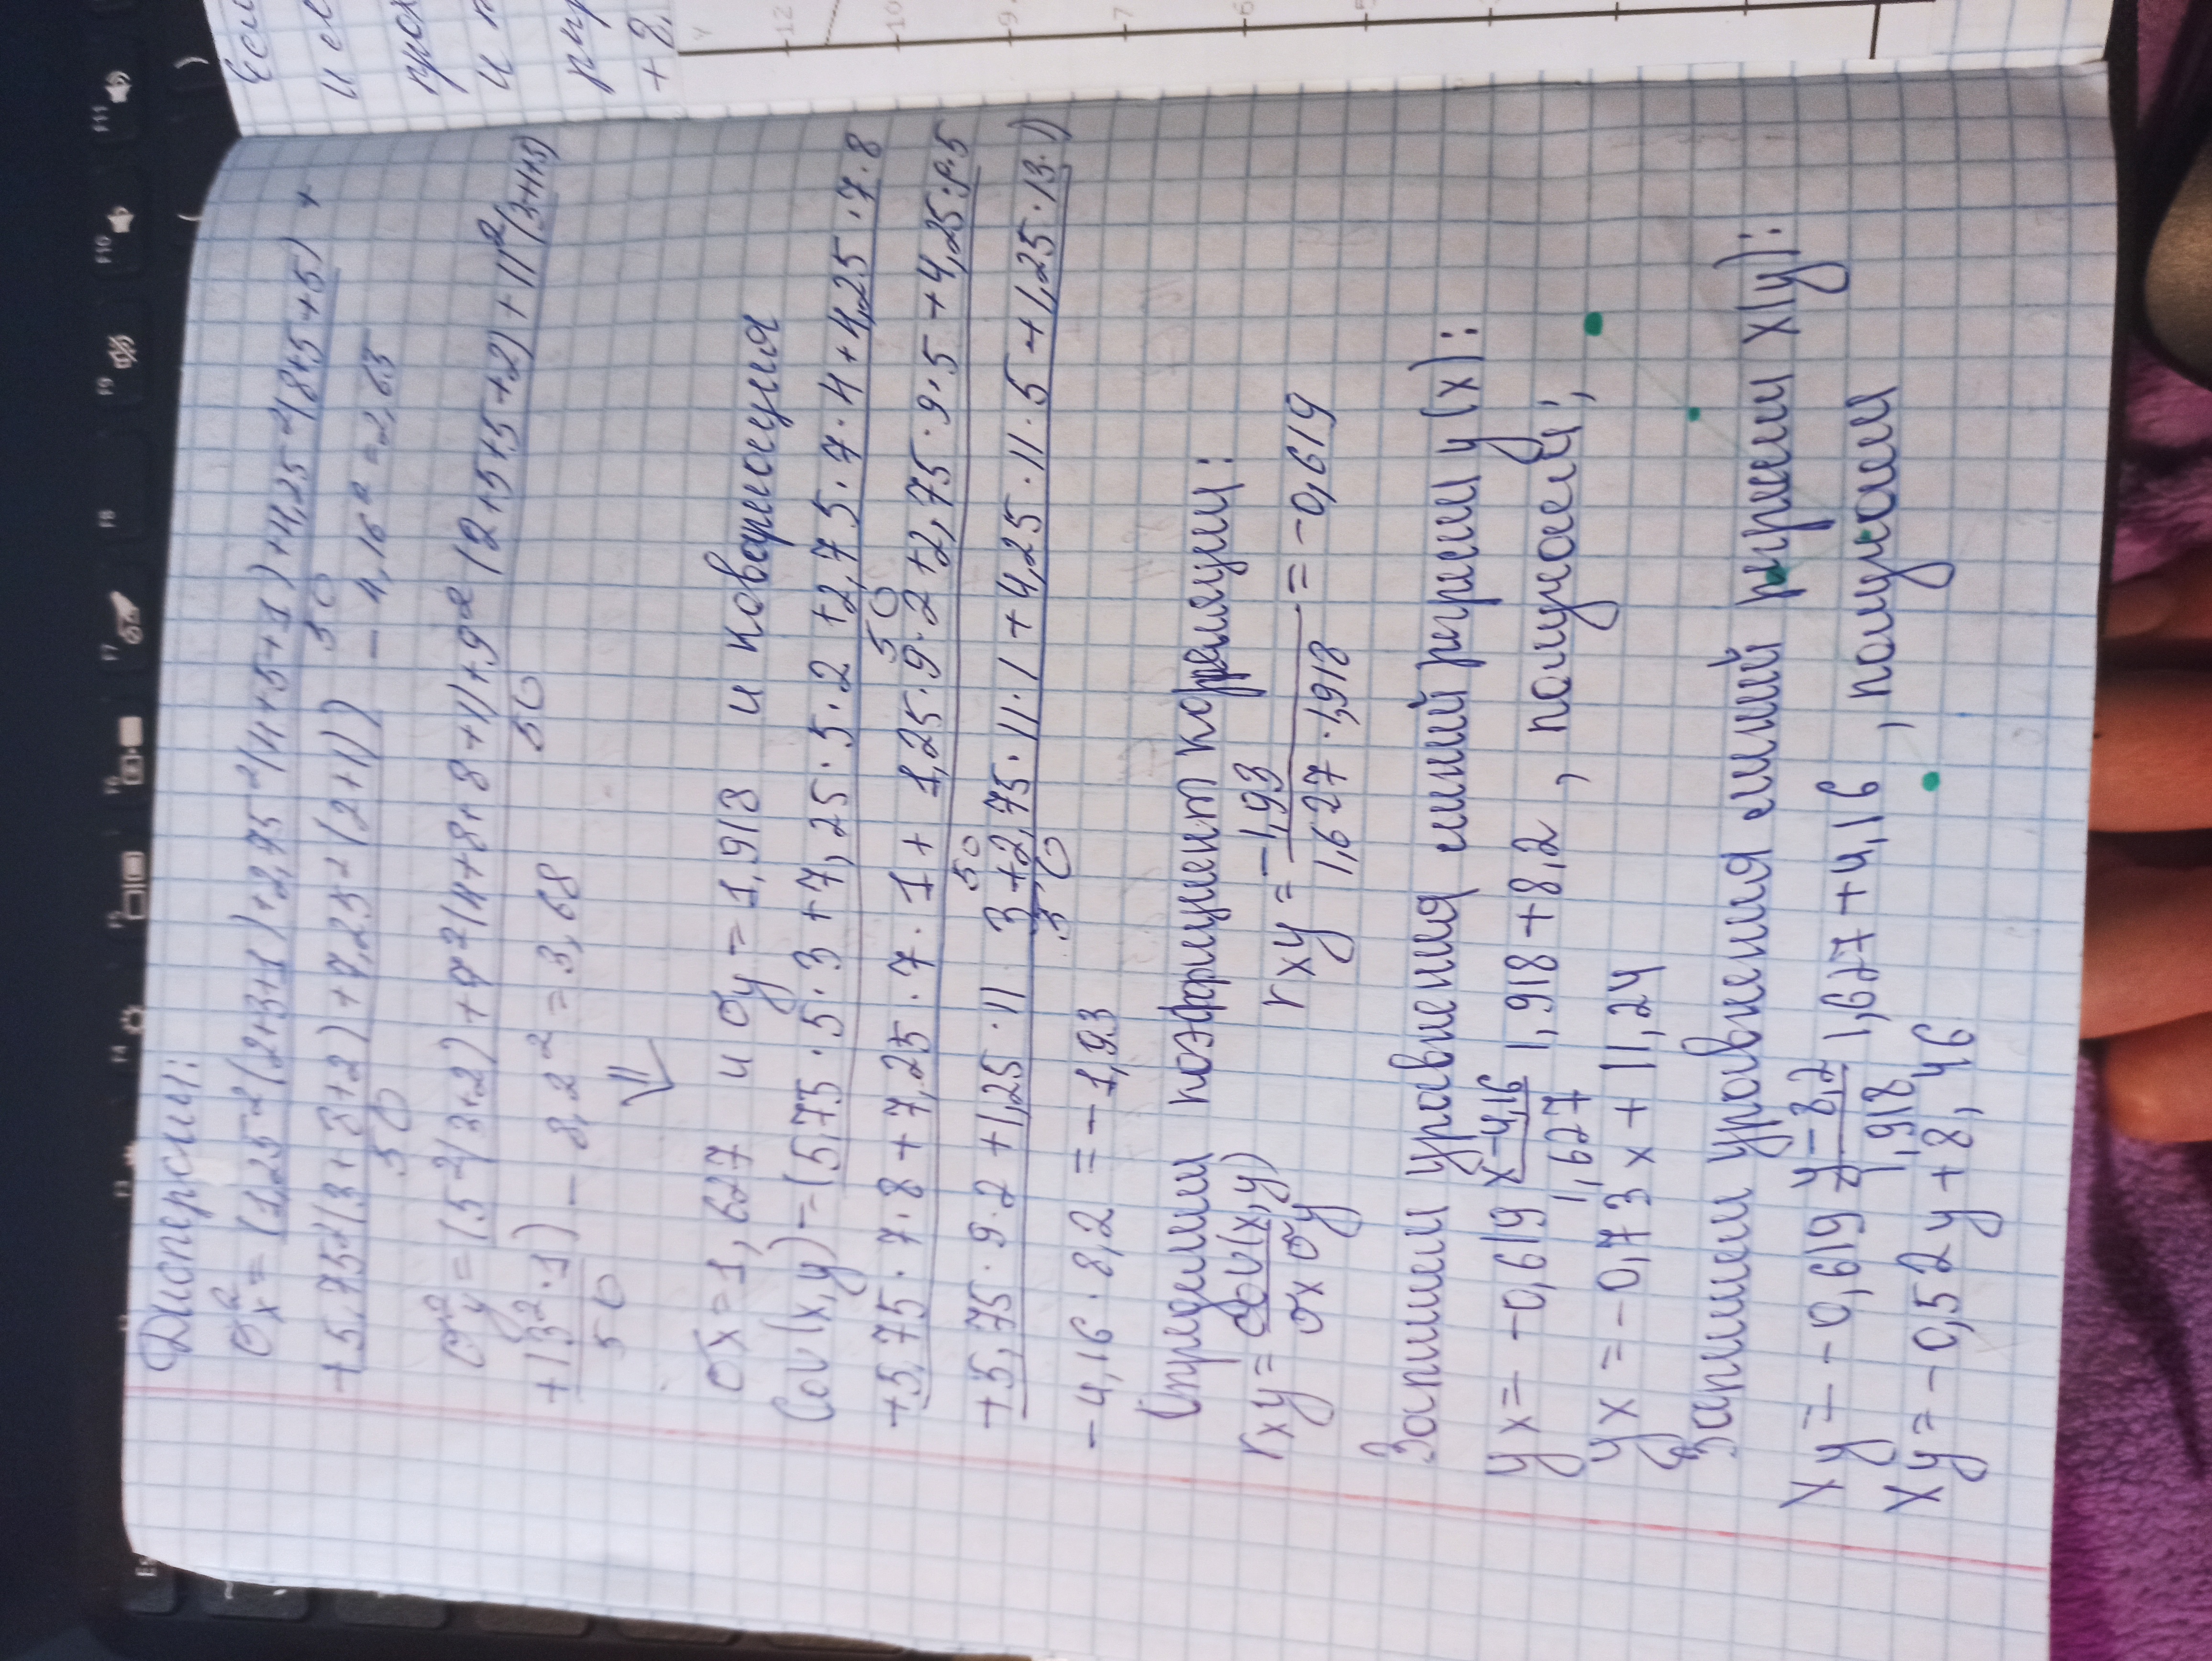 Дисперсии:
σx² = (1,25²(2+3+1) + 2,75²(4+5+1) + 4,25²(8+5+5) +
+ 5,75²(3+8+2) + 7,25²(2+1)) / 50 - 4,16² = 2,65
σy² = (5²(3+2) + 7²(4+8+8+1) + 9²(2+5+5+2) + 11²(3+1+5)
+ 13²·1) / 50 - 8,2² = 3,68
⇓
σx = 1,627 и σy = 1,918 и ковариация
Cov(x,y) = (5,75·5·3 + 7,25·5·2 + 2,75·7·4 + 4,25·7·8
+ 5,75·7·8 + 7,25·7·1 + 1,25·9·2 + 2,75·9·5 + 4,25·9·5
+ 5,75·9·2 + 1,25·11 3 + 2,75·11·1 + 4,25·11·5 + 1,25·13·1) / 50
- 4,16·8,2 = -1,93
Определим коэффициент корреляции:
rxy = cov(x,y) / σx σy rxy = -1,93 / 1,627·1,918 = -0,619
Запишем уравнения линий регрессии y(x):
yx = -0,619 x-4,16 / 1,627 1,918 + 8,2, получаем;
yx = -0,73x + 11,24
Запишем уравнения линий регрессии x(y):
Xy = -0,619 y-8,2 / 1,918 1,627 + 4,16, получаем
Xy = -0,52y + 8,46